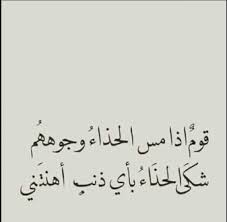 قومٌ اذا مس الحذاءُ وجوههُم
شكَى الحذَاءُ بأي ذنبٍ أهنتَني